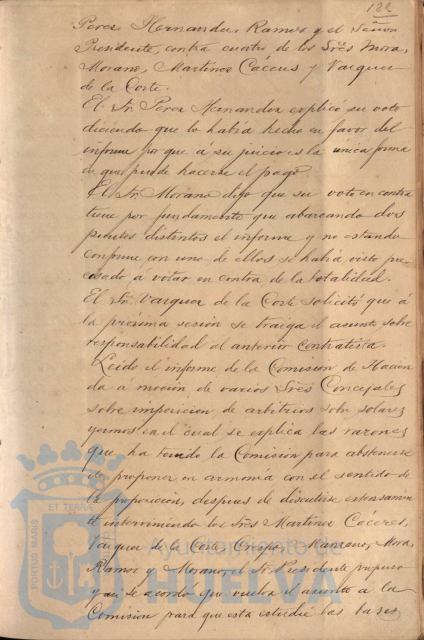 122
Perez Hernandez, Ramos y el Señor
Presidente, contra cuatro de los Sres Mora,
Morano, Martinez Cáceres y Vazquez
de la Corte.
El Sr. Perez Hernandez esplicó su voto
diciendo que lo habia hecho en favor del
informe por que á su juicio es la unica forma
en que puede hacerse el pago.
El Sr. Morano dijo que su voto en contra
tiene por fundamento que abarcando dos
puntos distintos el informe y no estando
conforme con uno de ellos se habia visto pre-
cisado á votar en contra de la totalidad.
El Sr. Vazquez de la Corte solicitó que á
la próxima sesión se traiga el asunto sobre
responsabilidad al anterior contratista.
Leido el informe de la Comision de Hacien
da á mocion de varios Sres Concejales
sobre imposicion de arbitrios sobre solares
yermos en el cual se esplica las razones
que ha tenido la Comisión para abstenerse
de proponer en armonía con el sentido de
la proposicion, despues de discutirse estensamente
é interviniendo los Sres Martinez Cáceres,
Vazquez de la Corte, Crespo, Moreno, Mora,
Ramos y Morano, el Sr. Presidente propuso
y asi se acordó que vuelva el asunto á la
Comision para que esta estudie las bases
PORTUS MARIS
ET TERRÆ
Ayuntamiento de
HUELVA